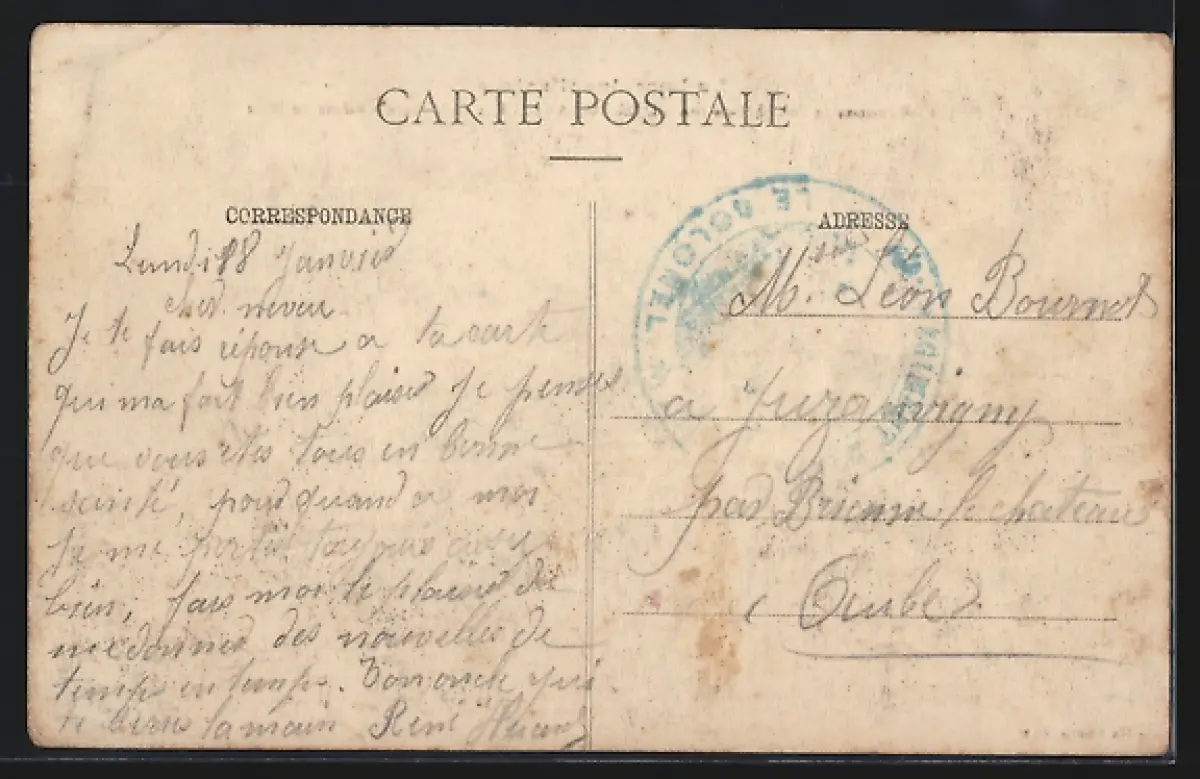 CARTE POSTALE
CORRESPONDANCE
Lundi 18 Janvier
cher neveu
Je te fais réponse a ta carte
qui ma fait bien plaisir je penses
que vous êtes tous en bonne
santé, pour quand a moi
je me porte toujours assez
bien, fais moi le plaisir de
me donner des nouvelles de
temps en temps. Ton oncle qui
te serre la main René
ADRESSE
Mr. Léon Bournot
a Juzanvigny
par Brienne le chateau
(Aube)
LE COLONEL